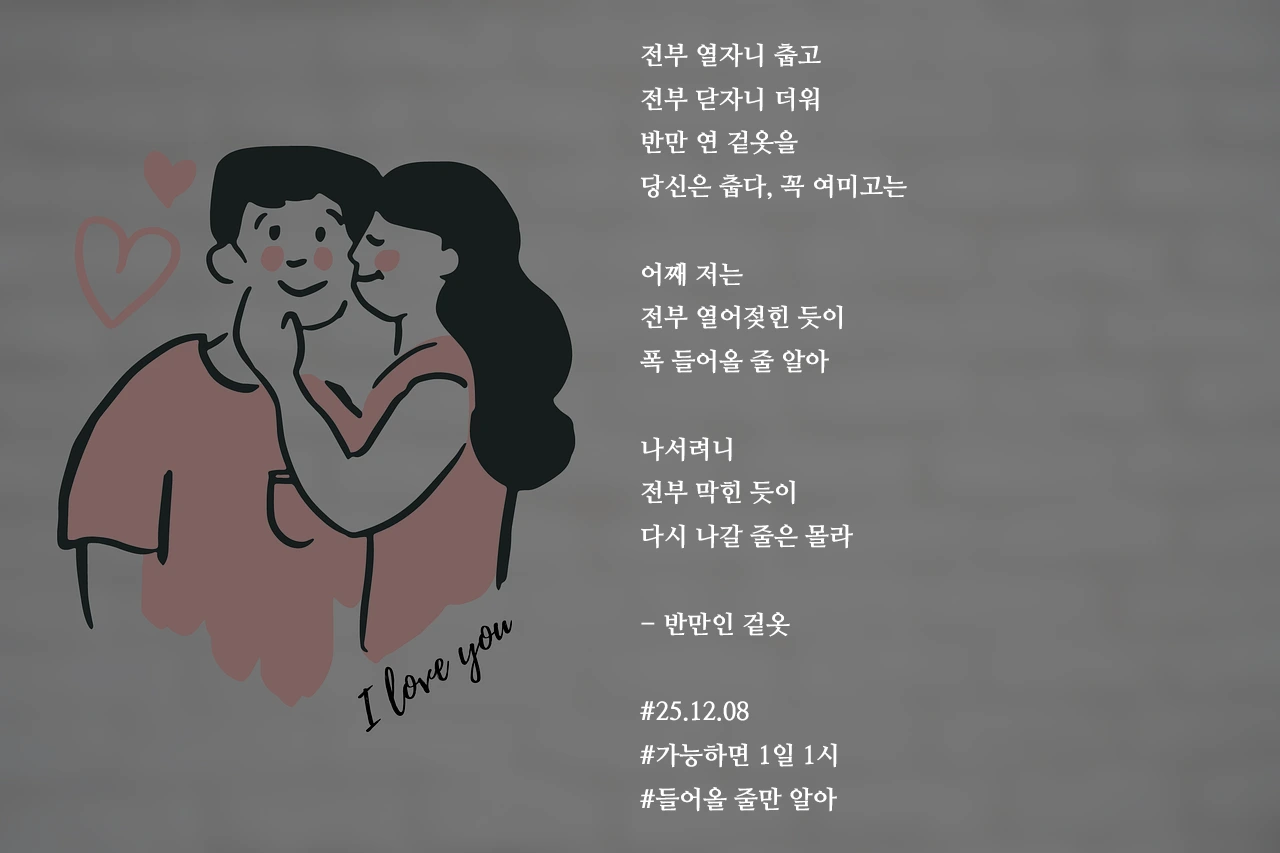 전부 열자니 춥고
전부 닫자니 더워
반만 연 겉옷을
당신은 춥다, 꼭 여미고는
어째 저는
전부 열어젖힌 듯이
폭 들어올 줄 알아
나서려니
전부 막힌 듯이
다시 나갈 줄은 몰라
- 반만인 겉옷
#25.12.08
#가능하면 1일 1시
#들어올 줄만 알아
I love you